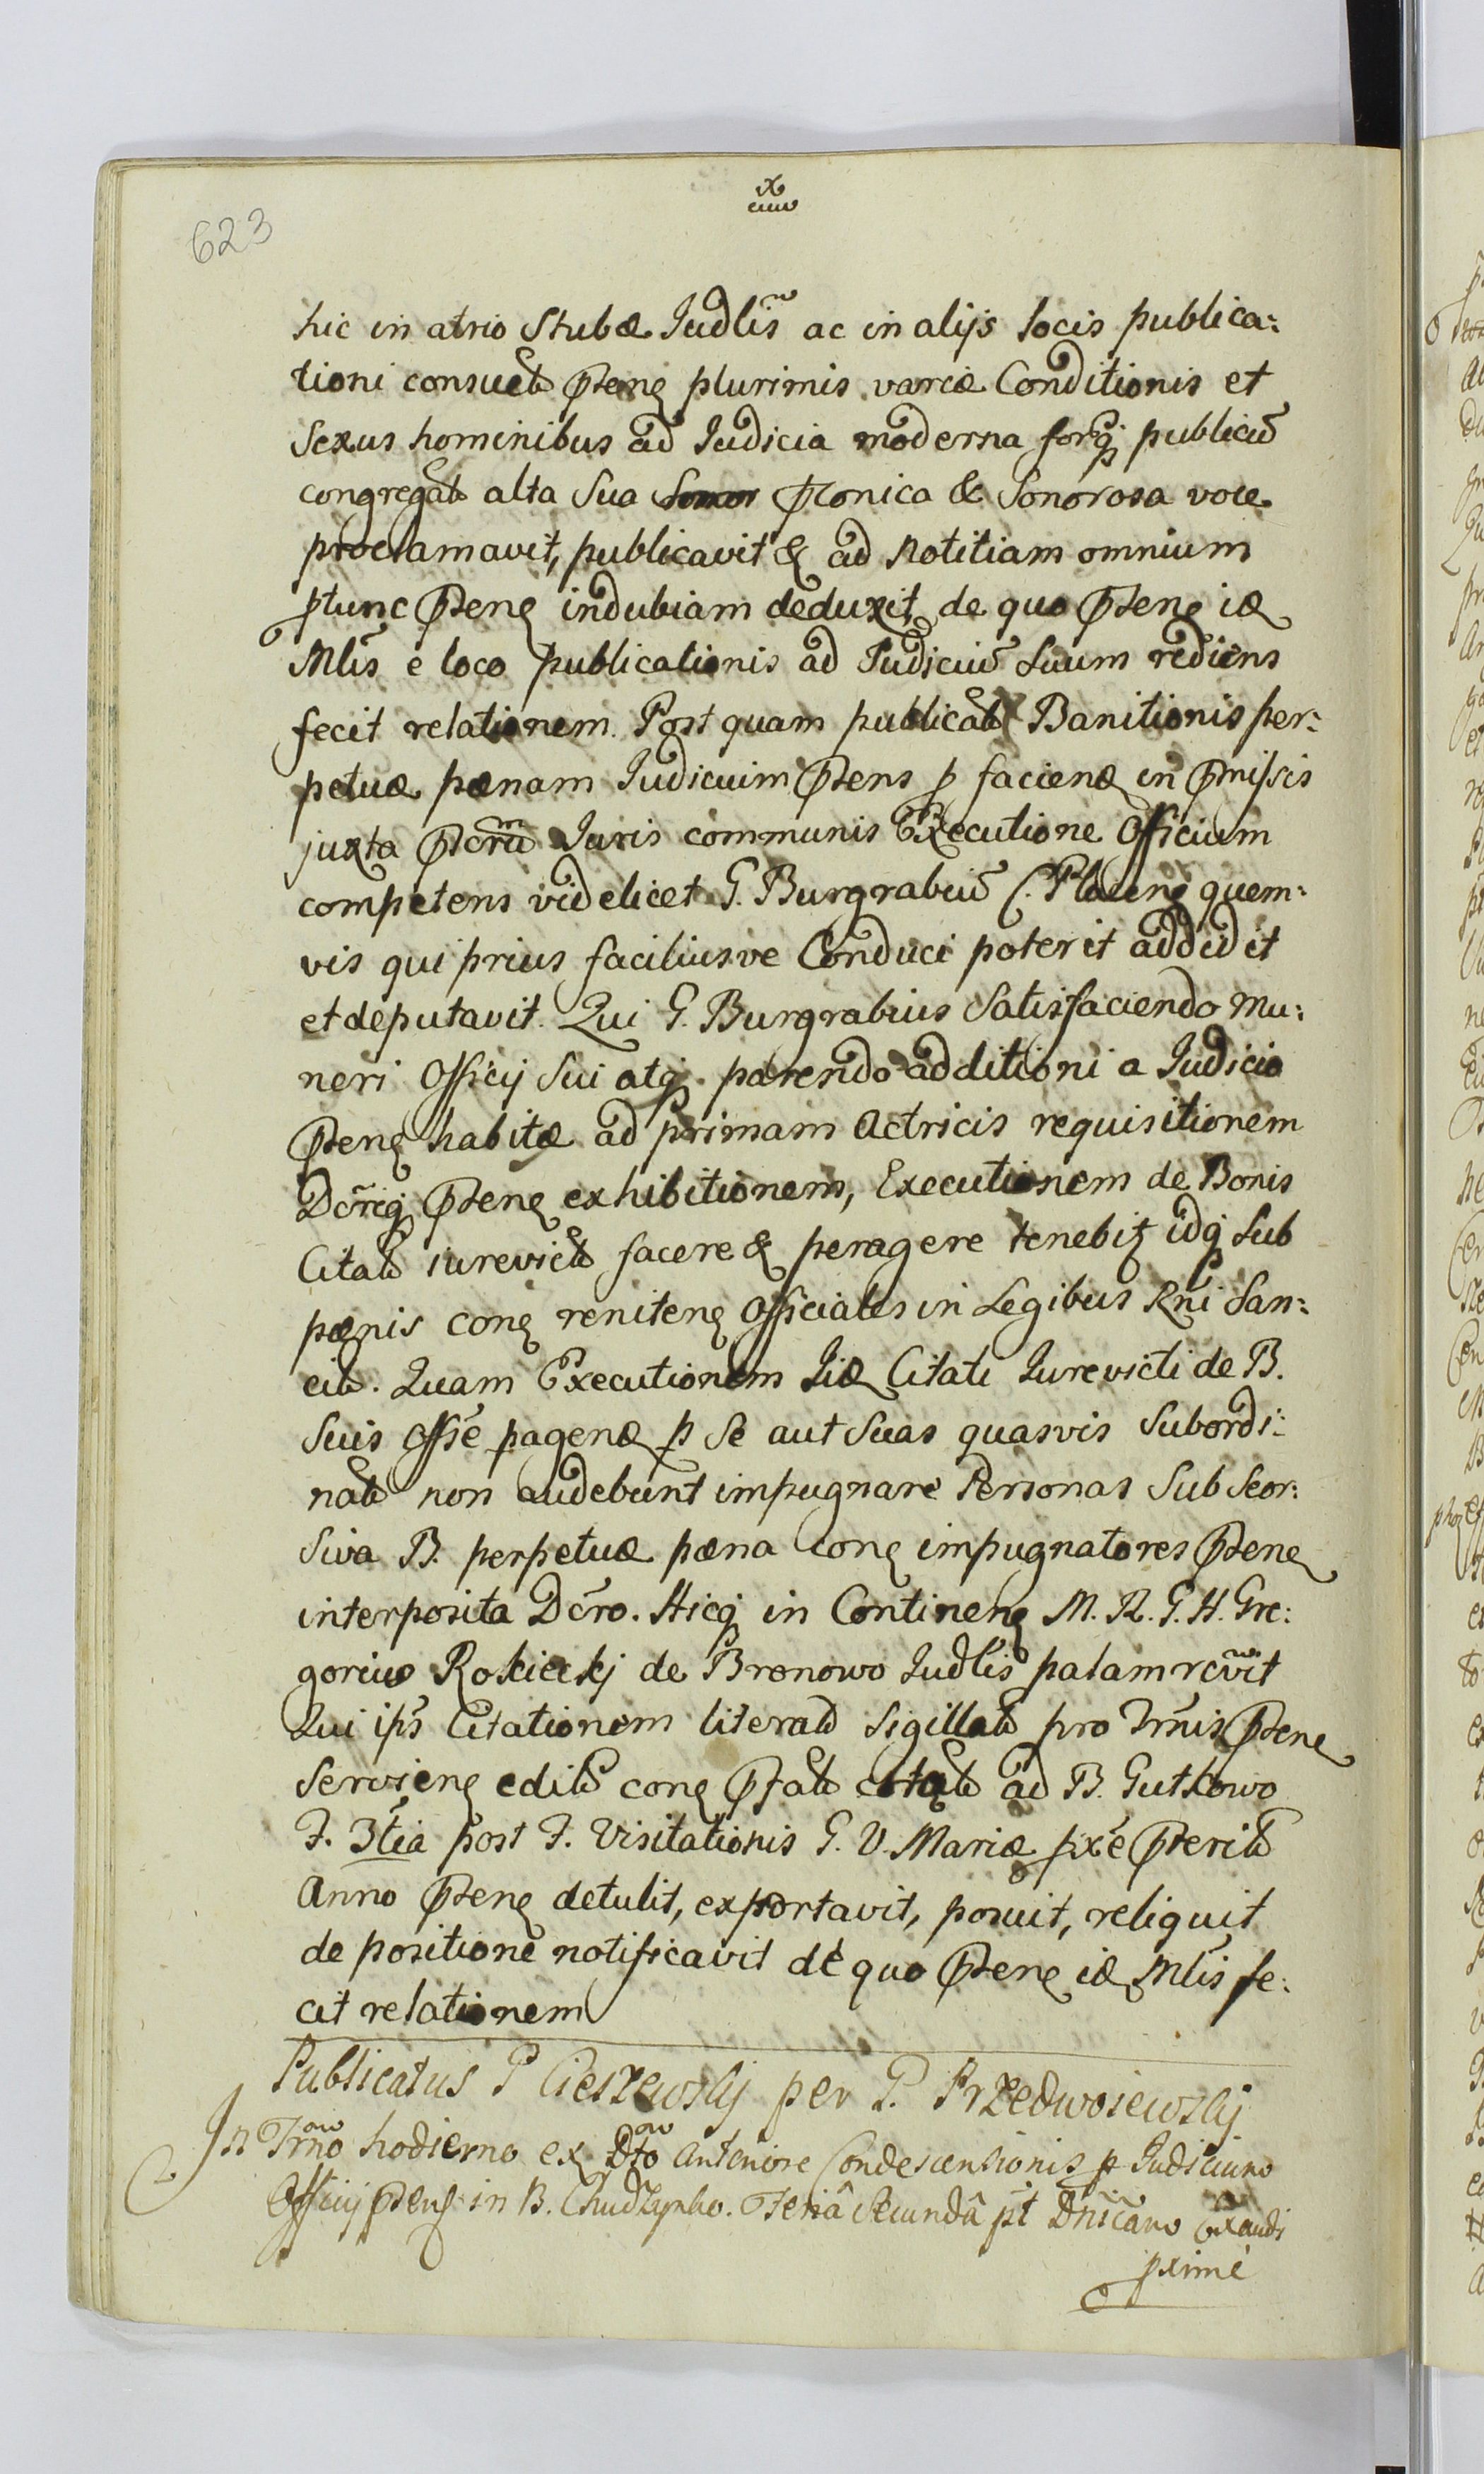 623
hic in atrio Stubæ Judlis̃ ac in alijs locis publica:
tioni consuet Pteng plurimis variæ Conditionis et
Sexus hominibus ad Judicia moderna forq publicũ
congregat alta Sua Sonor ptonica & Sonorosa voce
proclamavit, publicavit & ad Notitiam omnium
ptunc Pteng indubiam deduxit, de quo Pteng id
Mlis̃ e loco publicationis ad Judiciũ Suum rediens
fecit relationem. Post quam publicat Banitionis per:
petuæ pænam Judicium Ptens p faciend in Pmissis
juxta Ptcrũm Juris communis Executione Officium
competens videlicet G. Burgrabiũ C. Plocens quem:
vis qui prius faciliusve Conduci poterit addidit
et deputavit. Qui G. Burgrabius Satisfaciendo Mu:
neri Officij Sui atq parendo additioni a Judicio
Pteng habitæ ad primam Actricis requisitionem
Dc̃req Pteng exhibitionem, Executionem de Bonis
Citat jurevict facere & peragere tenebit idq Sub
pænis cong reniteng Officiales in Legibus Rñi San:
cit. Quam Executionem Iid Citati Jurevicti de B.
Suis Offsẽ pagend p Se aut Suas quasvis Subordi:
nat non audebunt impugnare Personas Sub Seor:
Siva B. perpetuæ pæna cong impugnatores Pteng
interposita Dc̃ro. Hicq in Contineng M. R. G. H. Gre:
gorius Rokickj de Bronowo Judlis̃ palam rcṽit
Qui ips̃ Citationem literat Sigillat pro Trm̃is Pteng
Servieng edit cong Pfat citat ad B. Gutkowo
F. 3tia post F. Visitationis G. V. Mariæ pxẽ Pterit
Anno Pteng detulit, exportavit, posuit, reliquit
de positione notificavit de quo Pteng id Mlis̃ fe:
cit relationem
Publicatus P Cieszewskj per P. Przedwoiewskj
In Trño hodierno ex Dto anteriore Condescensionis p Judicium
Officij Pteng in B. Chudzynko. Feriâ Secundâ pt Dñicam Exaudi
pxime